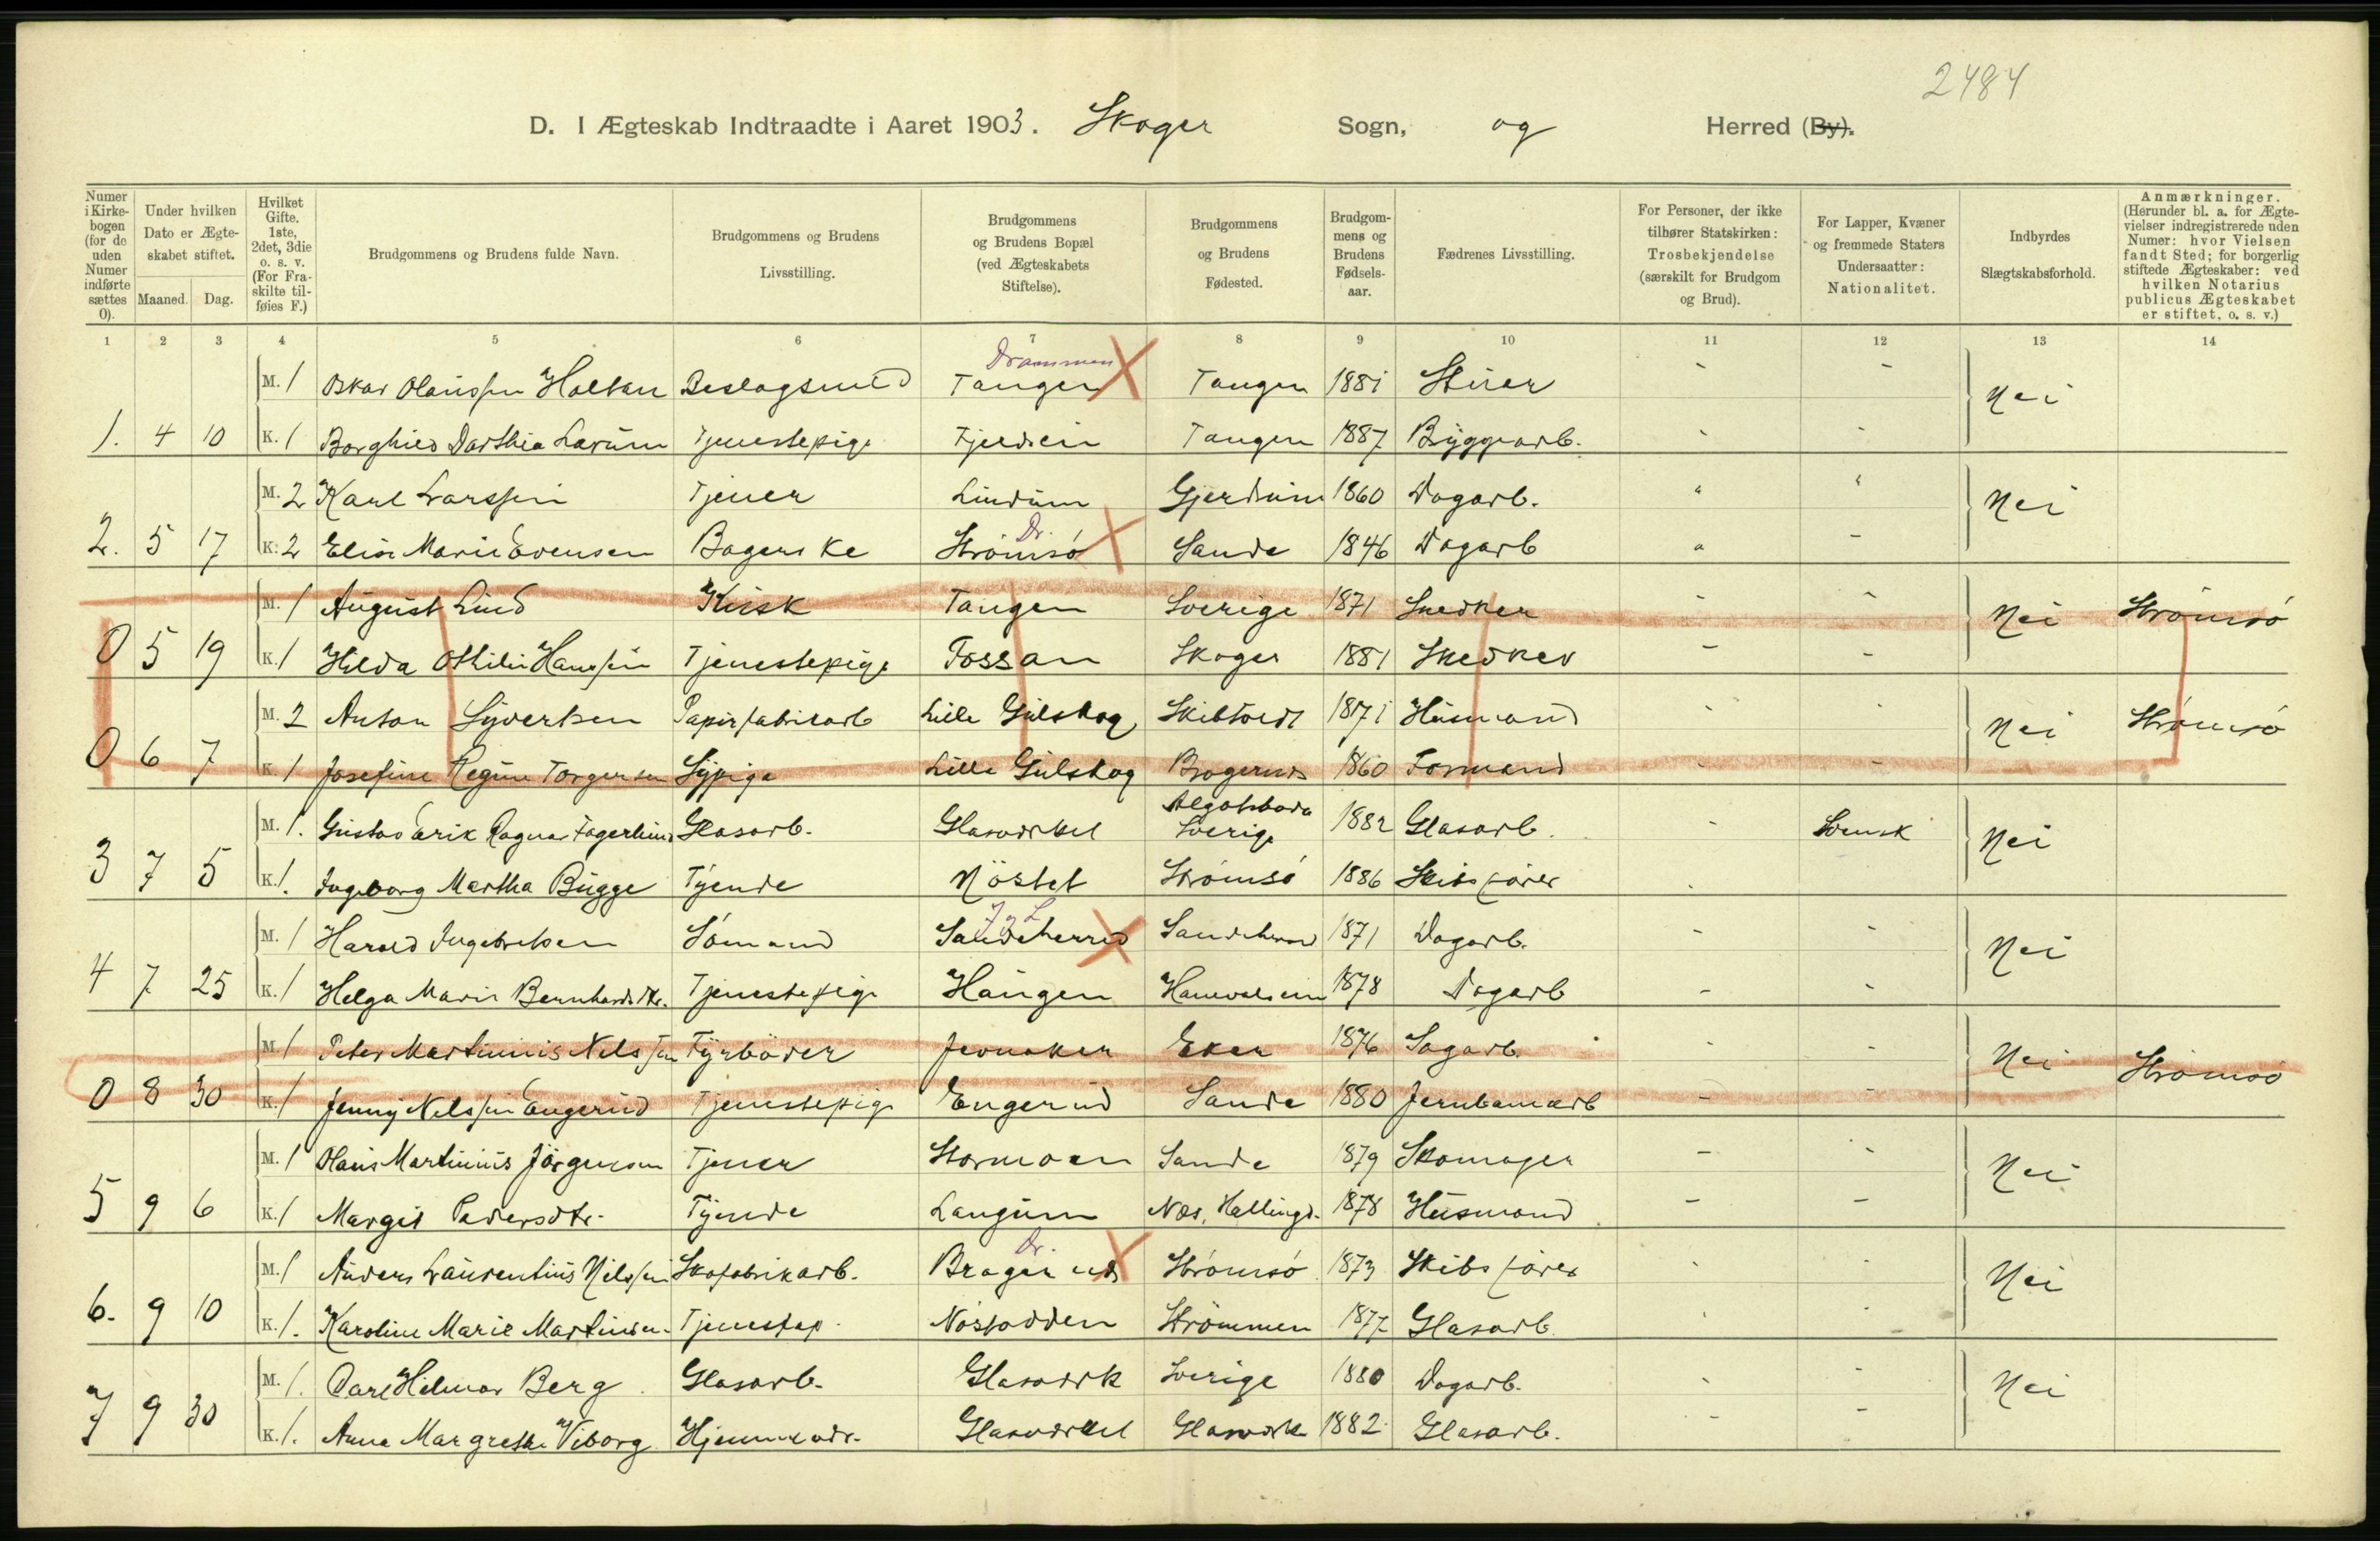 2484
D. I Ægteskab Indtraadte i Aaret 1903. Skoger Sogn, og Herred (By).
Numer i Kirkebogen (for de uden Numer indførte sættes 0).
Under hvilken Dato er Ægteskabet stiftet.
Maaned. Dag.
Hvilket Gifte. 1ste, 2det, 3die o. s. v. (For Fraskilte tilføies F.)
Brudgommens og Brudens fulde Navn.
Brudgommens og Brudens Livsstilling.
Brudgommens og Brudens Bopæl (ved Ægteskabets Stiftelse).
Brudgommens og Brudens Fødested.
Brudgommens og Brudens Fødselsaar.
Fædrenes Livsstilling.
For Personer, der ikke tilhører Statskirken: Trosbekjendelse (særskilt for Brudgom og Brud).
For Lapper, Kvæner og fremmede Staters Undersaatter: Nationalitet.
Indbyrdes Slægtskabsforhold.
Anmærkninger. (Herunder bl. a. for Ægtevielser indregistrerede uden Numer: hvor Vielsen fandt Sted; for borgerlig stiftede Ægteskaber: ved hvilken Notarius publicus Ægteskabet er stiftet, o. s. v.)
1 2 3 4 5 6 7 8 9 10 11 12 13 14
Drammen
M. 1 Oskar Olaussen Holtan Beslagsmed Tangen Tangen 1881 Stuer - - Nei
1. 4 10 K. 1 Borghild Dorthea Larum Tjenestepige Fjeldsein Tangen 1887 Bryggearb. - -
M. 2 Karl Larssen Tjener Lindum Gjerdrum 1860 Dagarb. " " Nei
Dr.
2. 5 17 K. 2 Elise Marie Evensen Bagerske Strømsø Sande 1846 Dagarb " -
M. 1 August Lind Kusk Tangen Sverige 1871 Snedker - - Nei Strømsø
0 5 19 K. 1 Hilda Othilie Hanssen Tjenestepige Fossan Skoger 1881 Snedker - -
M. 2 Anton Syvertsen Papirfabrikarb Lille Gulskog Skibtvedt 1871 Husmand - - Nei Strømsø
0 6 7 K. 1 Josefine Regine Torgersen Sypige Lille Gulskog Bragernds 1860 Formand - -
Algotsboda
M. 1. Gustav Erik Ragnar Fagerlund Glasarb. Glasverket Sverige 1882 Glasarb. - Svensk Nei
3 7 5 K. 1. Ingeborg Martha Bugge Tyende Nöstet Strømsø 1886 Skibsfører
J & L
M. 1 Harald Ingebretsen Sømand Sandeherred Sandeherred 1871 Dagarb. - - Nei
4 7 25 K. 1 Helga Marie Bernhardsdtr. Tjenestepige Haugen Hanevolseie 1878 Dagarb - -
M. 1 Peter Martinius Nelssen Fyrbøder Jevnaker Eker 1876 Sagarb. - - Nei Strømsø
0 8 30 K. 1 Jenny Nelssen Engerud Tjenestepige Engerud Sande 1880 Jernbanearb - -
M. 1 Olaus Martinius Jörgensen Tjener Stormoen Sande 1879 Skomager - - Nei
5 9 6 K. 1 Margit Pedersdtr. Tyende Langum Nes, Hallingd. 1878 Husmand - -
Dr.
M. 1 Anders Laurentius Nilssen Skofabrikarb. Bragernds Strømsø 1873 Skibsfører - - Nei
6. 9 10 K. 1. Karoline Marie Martinsen Tjenestep. Nøstodden Strømmen 1877 Glasarb. - -
M. 1. Carl Hilmar Berg Glasarb. Glasverk Sverige 1880 Dagarb. - - Nei
7 9 30 K. 1. Anna Margrethe Viborg Hjemmevær. Glasverket Glasverk 1882 Glasarb. - -